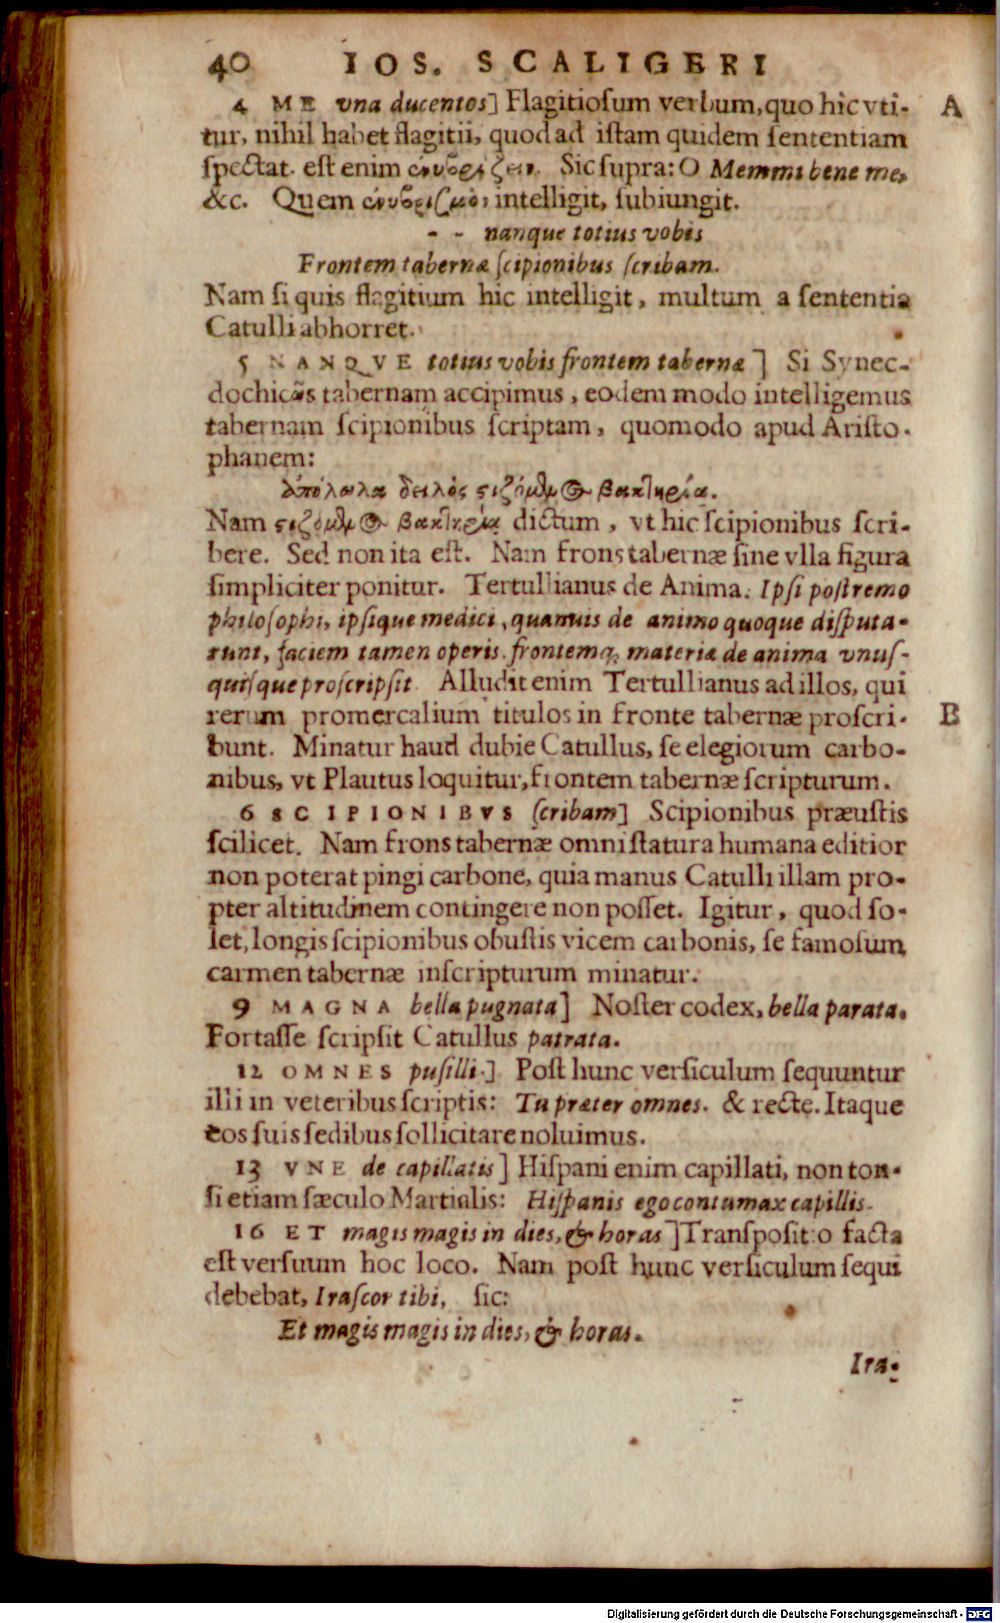 40 IOS. SCALIGERI
4 ME vna ducentos] Flagitiosum verbum, quo hîc vti- A
tur, nihil habet flagitii, quod ad istam quidem sententiam
spectat. est enim ἐνυβρίζειν. Sic supra: O Memmi bene me,
&c. Quem ἐνυβρισμὸν intelligit, subiungit.
- - nanque totius vobis
Frontem tabernæ scipionibus scribam.
Nam si quis flagitium hic intelligit, multum a sententia
Catulli abhorret.
5 NANQVE totius vobis frontem tabernæ] Si Synec-
dochicῶs tabernam accipimus, eodem modo intelligemus
tabernam scipionibus scriptam, quomodo apud Aristo-
phanem:
ἀπόλωλα δειλός ςιζόμθμ Θ βακτηρία.
Nam ςιζόμθμ Θ βακτηρία dictum, vt hic scipionibus scri-
bere. Sed non ita est. Nam frons tabernæ sine vlla figura
simpliciter ponitur. Tertullianus de Anima. Ipsi postremo
philosophi, ipsique medici, quamuis de animo quoque disputa-
runt, faciem tamen operis frontemq́; materiæ de anima vnus-
quisque proscripsit. Alludit enim Tertullianus ad illos, qui
rerum promercalium titulos in fronte tabernæ proscri- B
bunt. Minatur haud dubie Catullus, se elegiorum carbo-
nibus, vt Plautus loquitur, frontem tabernæ scripturum.
6 SCIPIONIBVS scribam] Scipionibus præustis
scilicet. Nam frons tabernæ omni statura humana editior
non poterat pingi carbone, quia manus Catulli illam pro-
pter altitudinem contingere non posset. Igitur, quod so-
let, longis scipionibus obustis vicem carbonis, se famosum
carmen tabernæ inscripturum minatur.
9 MAGNA bella pugnata] Noster codex, bella parata.
Fortasse scripsit Catullus patrata.
12 OMNES pusilli.] Post hunc versiculum sequuntur
illi in veteribus scriptis: Tu præter omnes. & recte. Itaque
eos suis sedibus sollicitare noluimus.
13 VNE de capillatis] Hispani enim capillati, non ton-
si etiam sæculo Martialis: Hispanis ego contumax capillis.
16 ET magis magis in dies, & horas] Transpositio facta
est versuum hoc loco. Nam post hunc versiculum sequi
debebat, Irascor tibi, sic:
Et magis magis in dies, & horas.
Ira-
Digitalisierung gefördert durch die Deutsche Forschungsgemeinschaft - DFG